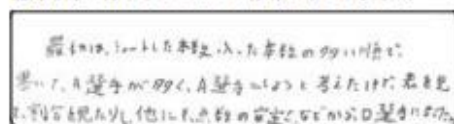 最初は、シュートした本数、入った本数の多い順で、
書いて、A選手が多く、A選手にしようと考えたけど、表を見
て、割合を見たりし他にも、点数の安定などからD選手にした。